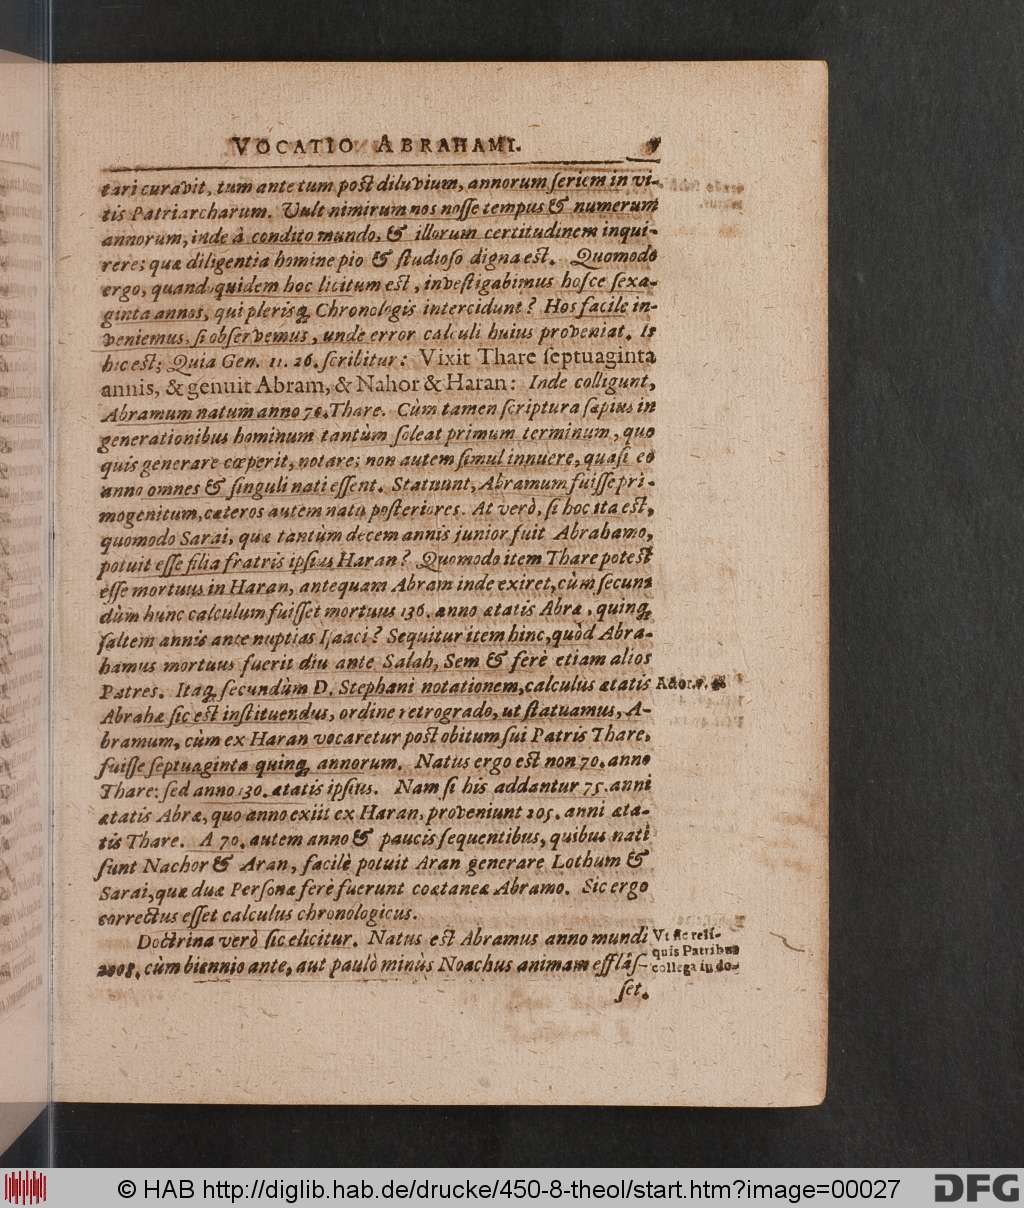 VOCATIO ABRAHAMI.
tari curavit, tum ante tum post diluvium, annorum seriem in vi-
tis Patriarcharum. Vult nimirum nos nosse tempus & numerum
annorum, inde â condito mundo, & illorum certitudinem inqui-
rere; quæ diligentia homine pio & studioso digna est. Quomodo
ergo, quandoquidem hoc licitum est, investigabimus hosce sexa-
ginta annos, qui plerisq; Chronologis intercidunt? Hos facile in-
veniemus, si observemus, unde error calculi huius proveniat. Is
hic est; Quia Gen. 11. 26. scribitur: Vixit Thare septuaginta
annis, & genuit Abram, & Nahor & Haran: Inde colligunt,
Abramum natum anno 70. Thare. Cùm tamen scriptura sæpius in
generationibus hominum tantùm soleat primum terminum, quo
quis generare cœperit, notare; non autem simul innuere, quasi eo
anno omnes & singuli nati essent. Statuunt, Abramum fuisse pri-
mogenitum, cæteros autem natu posteriores. At verò, si hoc ita est,
quomodo Sarai, quæ tantùm decem annis junior fuit Abrahamo,
potuit esse filia fratris ipsius Haran? Quomodo item Thare potest
esse mortuus in Haran, antequam Abram inde exiret, cùm secun-
dùm hunc calculum fuisset mortuus 136. anno ætatis Abræ, quinq;
saltem annis ante nuptias Isaaci? Sequitur item hinc, quòd Abra-
hamus mortuus fuerit diu ante Salah, Sem & ferè etiam alios
Patres. Itaq; secundùm D. Stephani notationem, calculus ætatis
Abrahæ sic est instituendus, ordine retrogrado, ut statuamus, A-
bramum, cùm ex Haran vocaretur post obitum sui Patris Thare,
fuisse septuaginta quinq; annorum. Natus ergo est non 70. anno
Thare: sed anno 130. ætatis ipsius. Nam si his addantur 75. anni
ætatis Abræ, quo anno exiit ex Haran, proveniunt 205. anni æta-
tis Thare. A 70. autem anno & paucis sequentibus, quibus nati
sunt Nachor & Aran, facilè potuit Aran generare Lothum &
Sarai, quæ duæ Personæ ferè fuerunt coætaneæ Abramo. Sic ergo
correctus esset calculus chronologicus.
Doctrina verò sic elicitur. Natus est Abramus anno mundi
2008. cùm biennio ante, aut paulò minùs Noachus animam efflâs-
set.
Vt sic reli-
quis Patribus
collega in do-
© HAB http://diglib.hab.de/drucke/450-8-theol/start.htm?image=00027
DFG